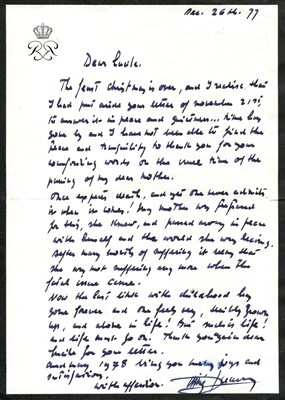 Dec. 26th. 77
Dear Lucile.
The feast Christmas is over, and I realise, that
I had put aside your letter of november 21st,
to answer it in peace and quietness... time has
gone by and I have not been able to find the
peace and tranquility to thank you for your
comforting words on the cruel time of the
passing of my dear mother.
Once expects death, and yet one never admits
it when it comes! My mother was prepared
for this, she knew, and passed away in peace
with herself and the world she was leaving.
After many months of suffering it seems that
she was not suffering any more when the
fatal issue came.
Now the last link with childhood has
gone forever and one feels very, suddenly grown
up, and alone in life! But such is life!
and life must go on. Thank you again dear
Lucile for your letter.
and may 1978 bring you many joys and
satisfactions.
with affection.